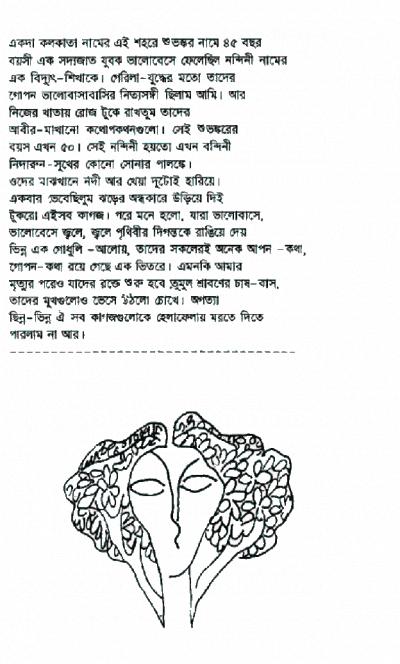 একদা কলকাতা নামের এই শহরে শুভঙ্কর নামে ৪৫ বছর
বয়সী এক সদ্যজাত যুবক ভালোবেসে ফেলেছিল নন্দিনী নামের
এক বিদ্যুৎ-শিখাকে। গেরিলা-যুদ্ধের মতো তাদের
গোপন ভালোবাসাবাসির নিত্যসঙ্গী ছিলাম আমি। আর
নিজের খাতায় রোজ টুকে রাখতুম তাদের
আবীর-মাখানো কথোপকথনগুলো। সেই শুভঙ্করের
বয়স এখন ৫০। সেই নন্দিনী হয়তো এখন বন্দিনী
নিদারুন-সুখের কোনো সোনার পালঙ্কে।
ওদের মাঝখানে নদী আর খেয়া দুটোই হারিয়ে।
একবার ভেবেছিলুম ঝড়ের অন্ধকারে উড়িয়ে দিই
টুকরো এইসব কাগজ। পরে মনে হলো, যারা ভালোবাসে,
ভালোবেসে জ্বলে, জ্বলে পৃথিবীর দিগন্তকে রাঙিয়ে দেয়
ভিন্ন এক গোধুলি -আলোয়, তাদের সকলেরই অনেক আপন -কথা,
গোপন-কথা রয়ে গেছে এক ভিতরে। এমনকি আমার
মৃত্যুর পরেও যাদের রক্তে শুরু হবে তুমুল শ্রাবণের চাষ-বাস,
তাদের মুখগুলোও ভেসে উঠলো চোখে। অগত্যা
ছিন্ন-ভিন্ন ঐ সব কাগজগুলোকে হেলাফেলায় মরতে দিতে
পারলাম না আর।